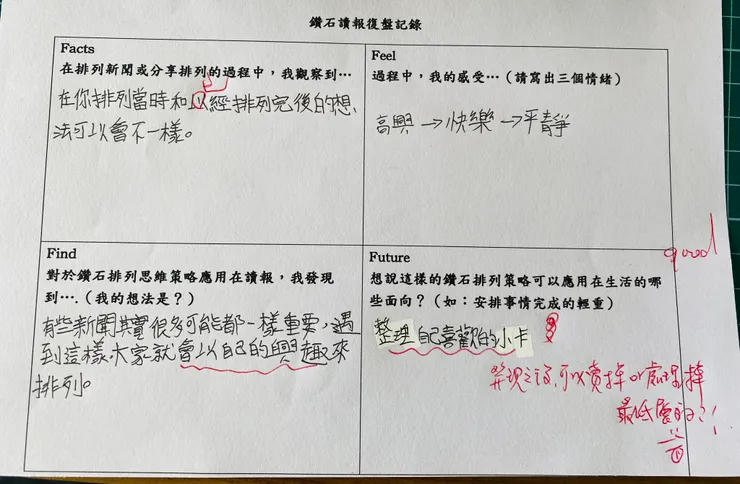 鑽石讀報復盤記錄
Facts
在排列新聞或分享排列的過程中，我觀察到…
在你排列當時和以經排列完後的想
法可以會不一樣。
Feel
過程中，我的感受…（請寫出三個情緒）
高興→快樂→平靜
Find
對於鑽石排列思維策略應用在讀報，我發現
到….（我的想法是？）
有些新聞其實很多可能都一樣重要，遇
到這樣大家就會以自己的興趣來
排列。
good
Future
想說這樣的鑽石排列策略可以應用在生活的哪
些面向？（如：安排事情完成的輕重）
整理自己喜歡的小卡
可以賣掉or處理掉
最低層的